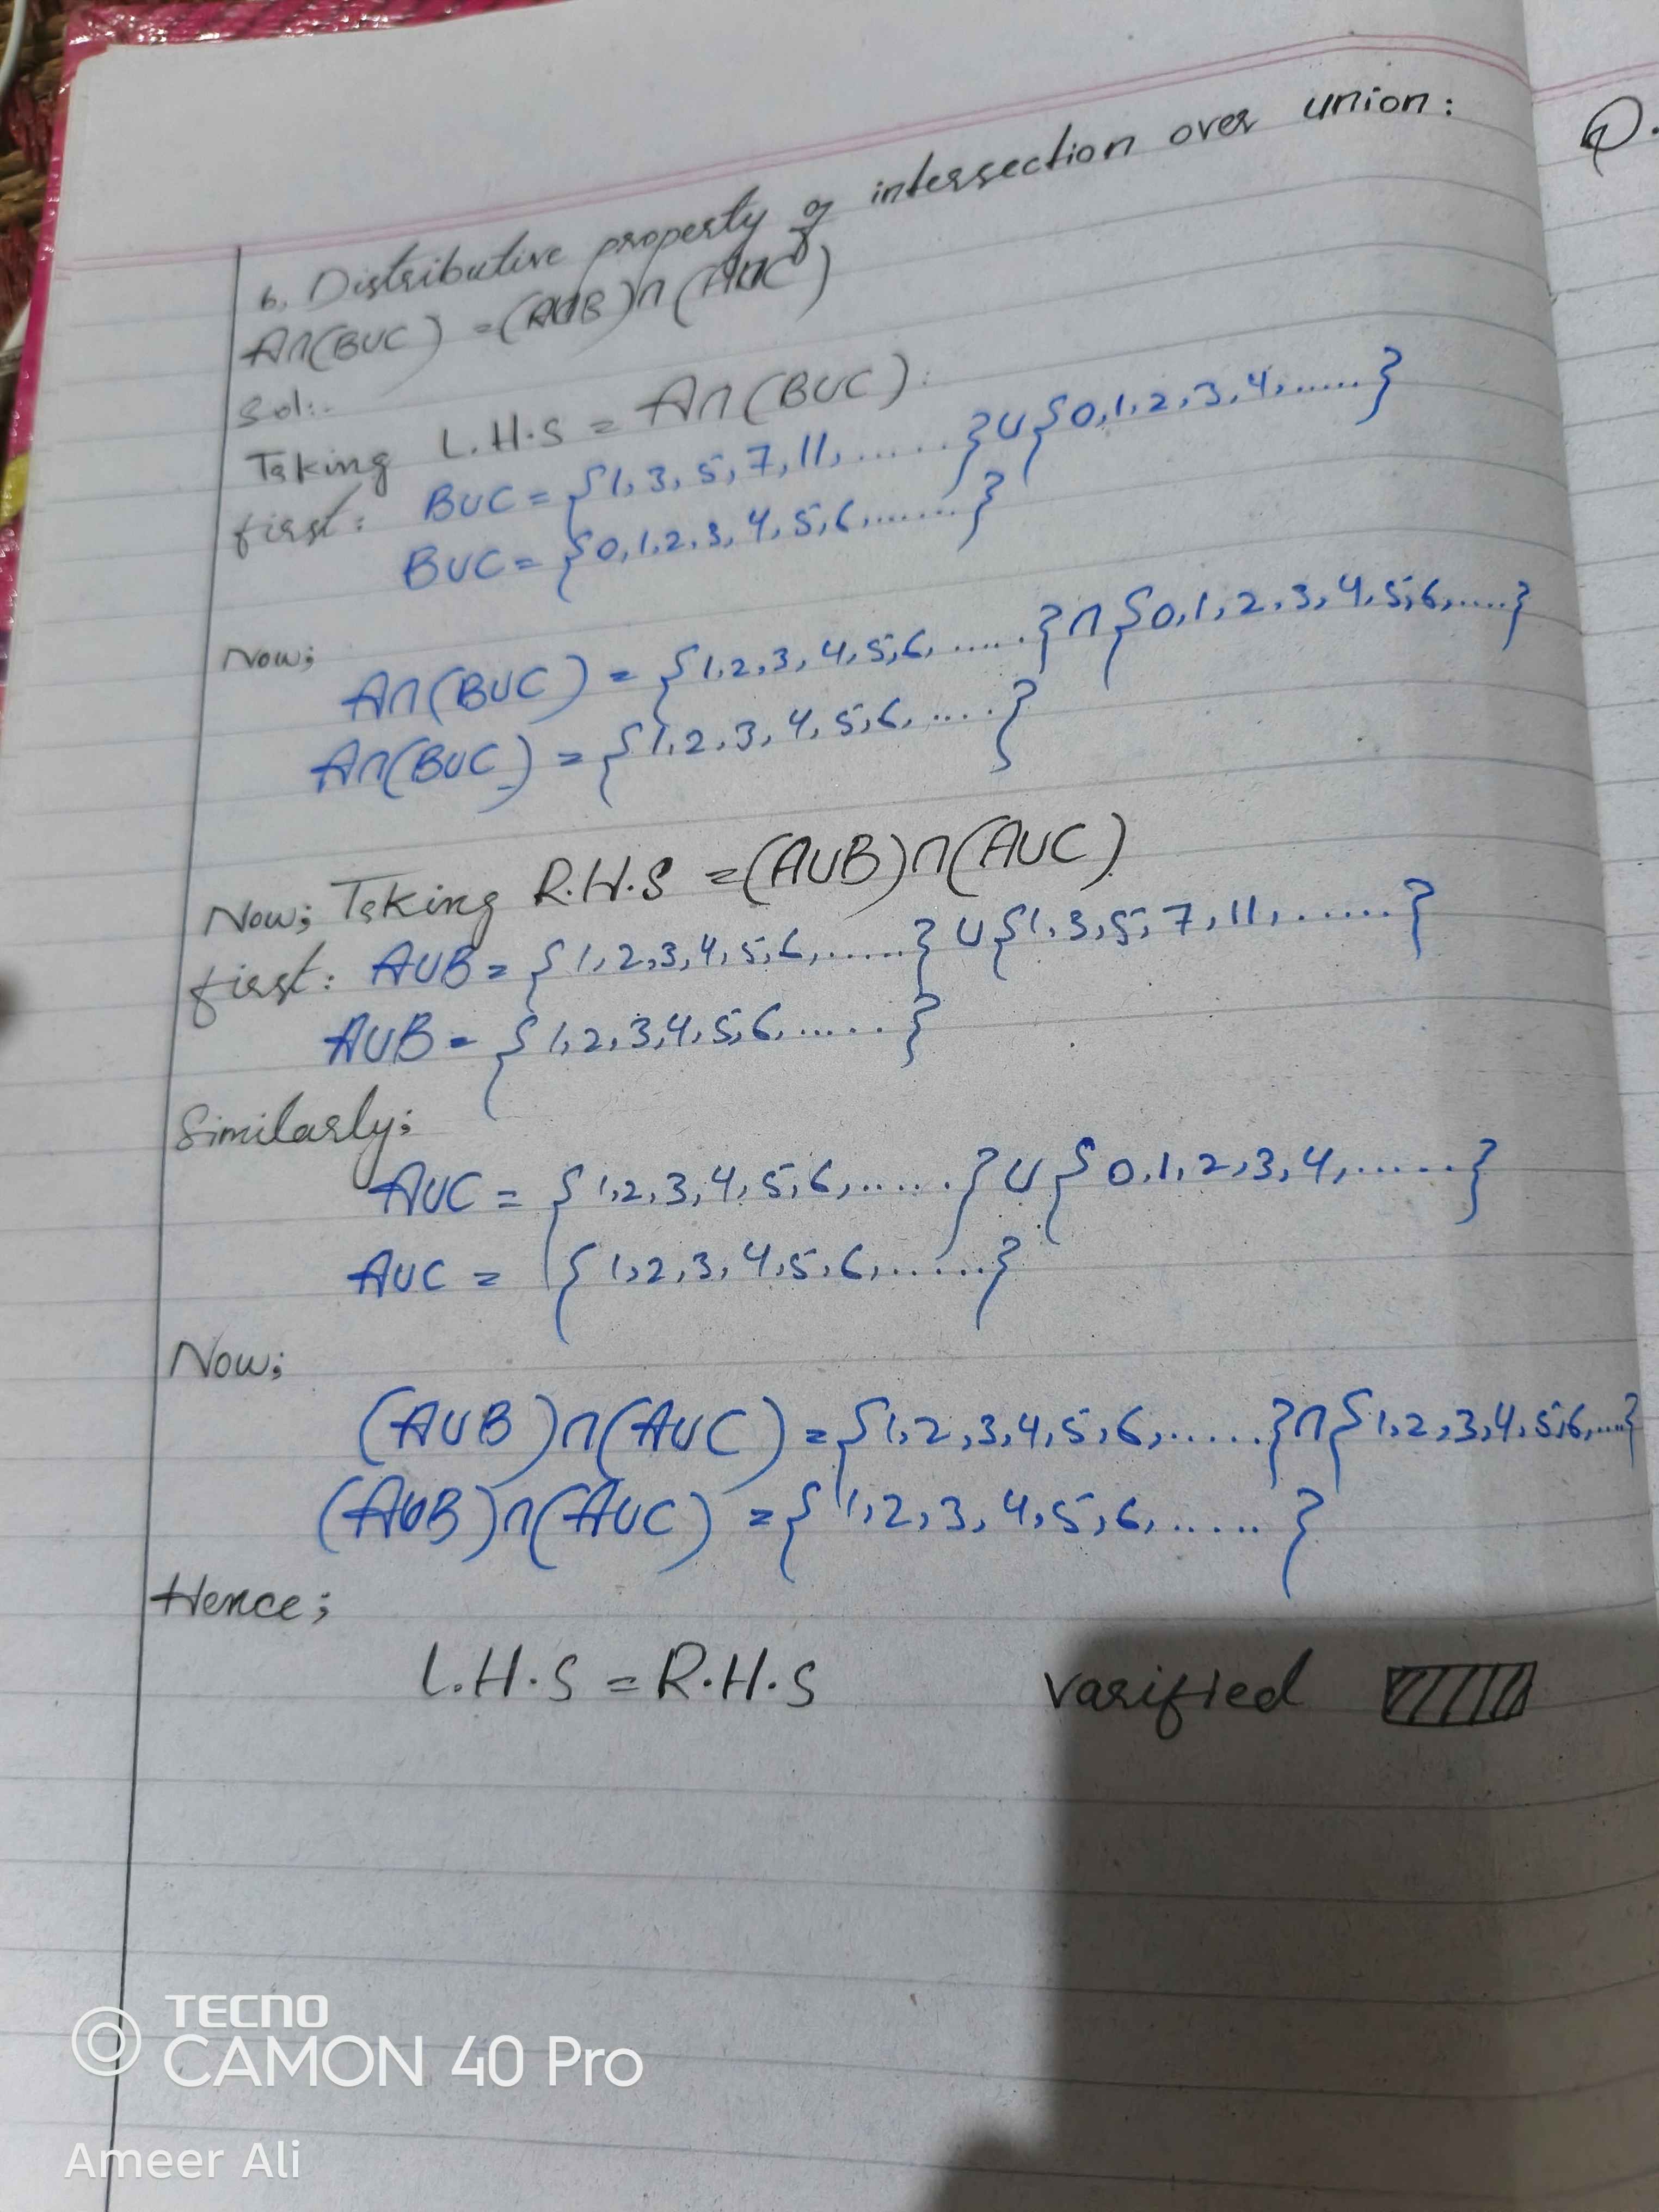 6. Distributive property of intersection over union:
A∩(B∪C) = (A∪B)∩(A∪C)
Sol:.
Taking L.H.S = A∩(B∪C):
first: B∪C = {1,3,5,7,11,......}∪{0,1,2,3,4,......}
B∪C = {0,1,2,3,4,5,6,.......}
Now;
A∩(B∪C) = {1,2,3,4,5,6,......}∩{0,1,2,3,4,5,6,.....}
A∩(B∪C) = {1,2,3,4,5,6,.....}
Now; Taking R.H.S = (A∪B)∩(A∪C)
first: A∪B = {1,2,3,4,5,6,......}∪{1,3,5,7,11,......}
A∪B = {1,2,3,4,5,6,......}
Similarly;
A∪C = {1,2,3,4,5,6,......}∪{0,1,2,3,4,......}
A∪C = {1,2,3,4,5,6,......}
Now;
(A∪B)∩(A∪C) = {1,2,3,4,5,6,......}∩{1,2,3,4,5,6,....}
(A∪B)∩(A∪C) = {1,2,3,4,5,6,......}
Hence;
L.H.S = R.H.S varified
Q.
TECNO
CAMON 40 Pro
Ameer Ali